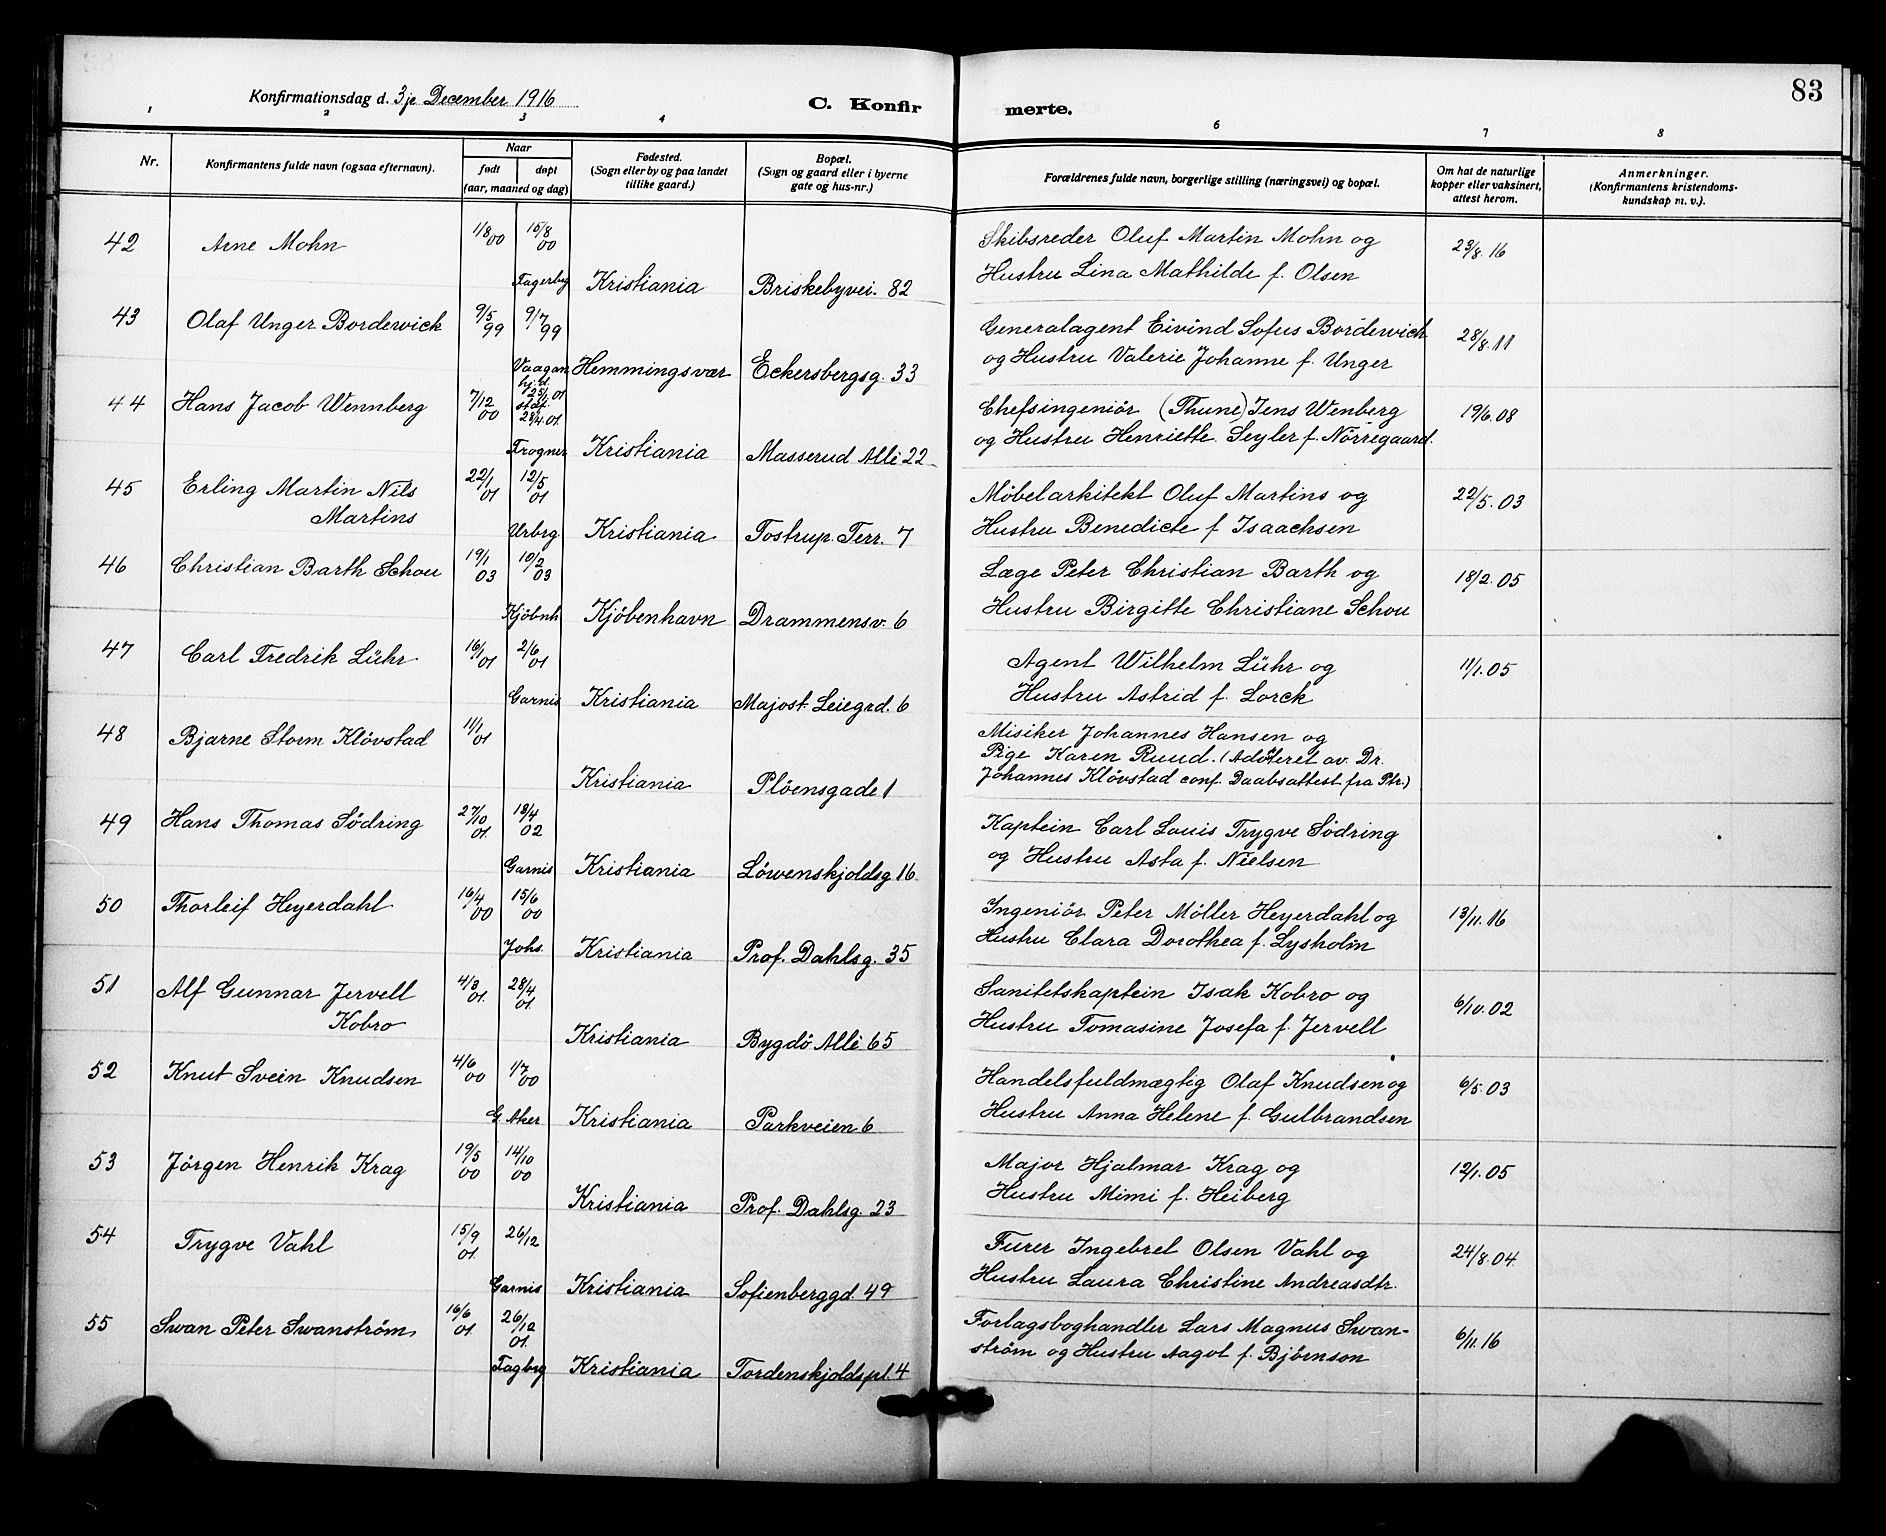 83
Konfirmationsdag d. 3je December 1916
C. Konfirmerte.
1 2 3 4 6 7 8
Nr.
Konfirmantens fulde navn (ogsaa efternavn).
Naar
født døpt
(aar, maaned og dag)
Fødested.
(Sogn eller by og paa landet
tillike gaard.)
Bopæl.
(Sogn og gaard eller i byerne
gate og hus-nr.)
Forældrenes fulde navn, borgerlige stilling (næringsvei) og bopæl.
Om hat de naturlige
kopper eller vaksinert,
attest herom.
Anmerkninger.
(Konfirmantens kristendoms-
kundskap m. v.).
42 Arne Mohn 1/8 00 15/8 00
Fagerbg Kristiania Briskebyvei. 82
Skibsreder Oluf Martin Mohn og
Hustru Lina Mathilde f. Olsen
23/8.16
43 Olaf Unger Borderwick 9/5 99 9/7 99
Vaagan Hemmingsvær Eckersbergsg. 33
Generalagent Eivind Sofus Borderwich
og Hustru Valerie Johanne f. Unger
28/8.11
44 Hans Jacob Wennberg 7/12 00 hj.d. 25/1 01 stadf. 28/4.01.
Frogner Kristiania Masserud Allé 22
Chefsingeniör (Thune) Jens Wenberg
og Hustru Henriette Seyler f. Nörregaard.
19/6.08
45 Erling Martin Nils
Martins 22/1 01 12/5 01
Urbrg. Kristiania Tostrup. Terr. 7
Möbelarkitekt Oluf Martins og
Hustru Benedicte f. Isaachsen
22/5.03
46 Christian Barth Schou 19/1 03 10/2 03
Kjöbnh Kjöbenhavn Drammensv. 6
Læge Peter Christian Barth og
Hustru Birgitte Christiane Schou
18/2.05
47 Carl Fredrik Lühr 16/1 01 2/6 01
Garnis Kristiania Majost. Leiegrd. 6
Agent Wilhelm Lühr og
Hustru Astrid f. Lorck
11/1.05
48 Bjarne Storm Klövstad 11/1 01
Kristiania Plöensgade 1
Misiker Johannes Hansen og
Pige Karen Ruud. (Adopteret av Dr.
Johannes Klövstad conf. Daabsattest fra Ptr.)
49 Hans Thomas Södring 27/10 01. 18/4 02
Garnis Kristiania Löwenskjoldsg 16.
Kaptein Carl Louis Trygve Södring
og Hustru Asta f. Nielsen
50 Thorleif Heyerdahl 16/4 00 15/6 00
Johs. Kristiania Prof. Dahlsg. 35
Ingeniör Peter Möller Heyerdahl og
Hustru Clara Dorothea f. Lysholm
13/11.16
51 Alf Gunnar Jervell
Kobro 4/3 01. 28/4 01.
Kristiania Bygdö Allé 65
Sanitetskaptein Isak Kobro og
Hustru Tomasine Josefa f. Jervell
6/10.02
52 Knut Svein Knudsen 4/6 00 1/7 00
G. Aker Kristiania Parkveien 6
Handelsfuldmægtig Olaf Knudsen og
Hustru Anna Helene f. Gulbrandsen
6/5.03
53 Jörgen Henrik Krag 19/5 00 14/10 00
Kristiania Prof. Dahlsg. 23
Major Hjalmar Krag og
Hustru Mimi f. Heiberg
12/1.05
54 Trygve Vahl 15/9 01. 26/12
Garnis Kristiania Sofienberggd. 49
Furer Ingebret Olsen Vahl og
Hustru Laura Christine Andreasdtr.
24/8.04
55 Swan Peter Swanström. 16/6 01. 26/12 01.
Fagbrg Kristiania Tordenskjoldspl. 4
Forlagsboghandler Lars Magnus Swan-
ström og Hustru Aagot f. Björnson
6/11.16